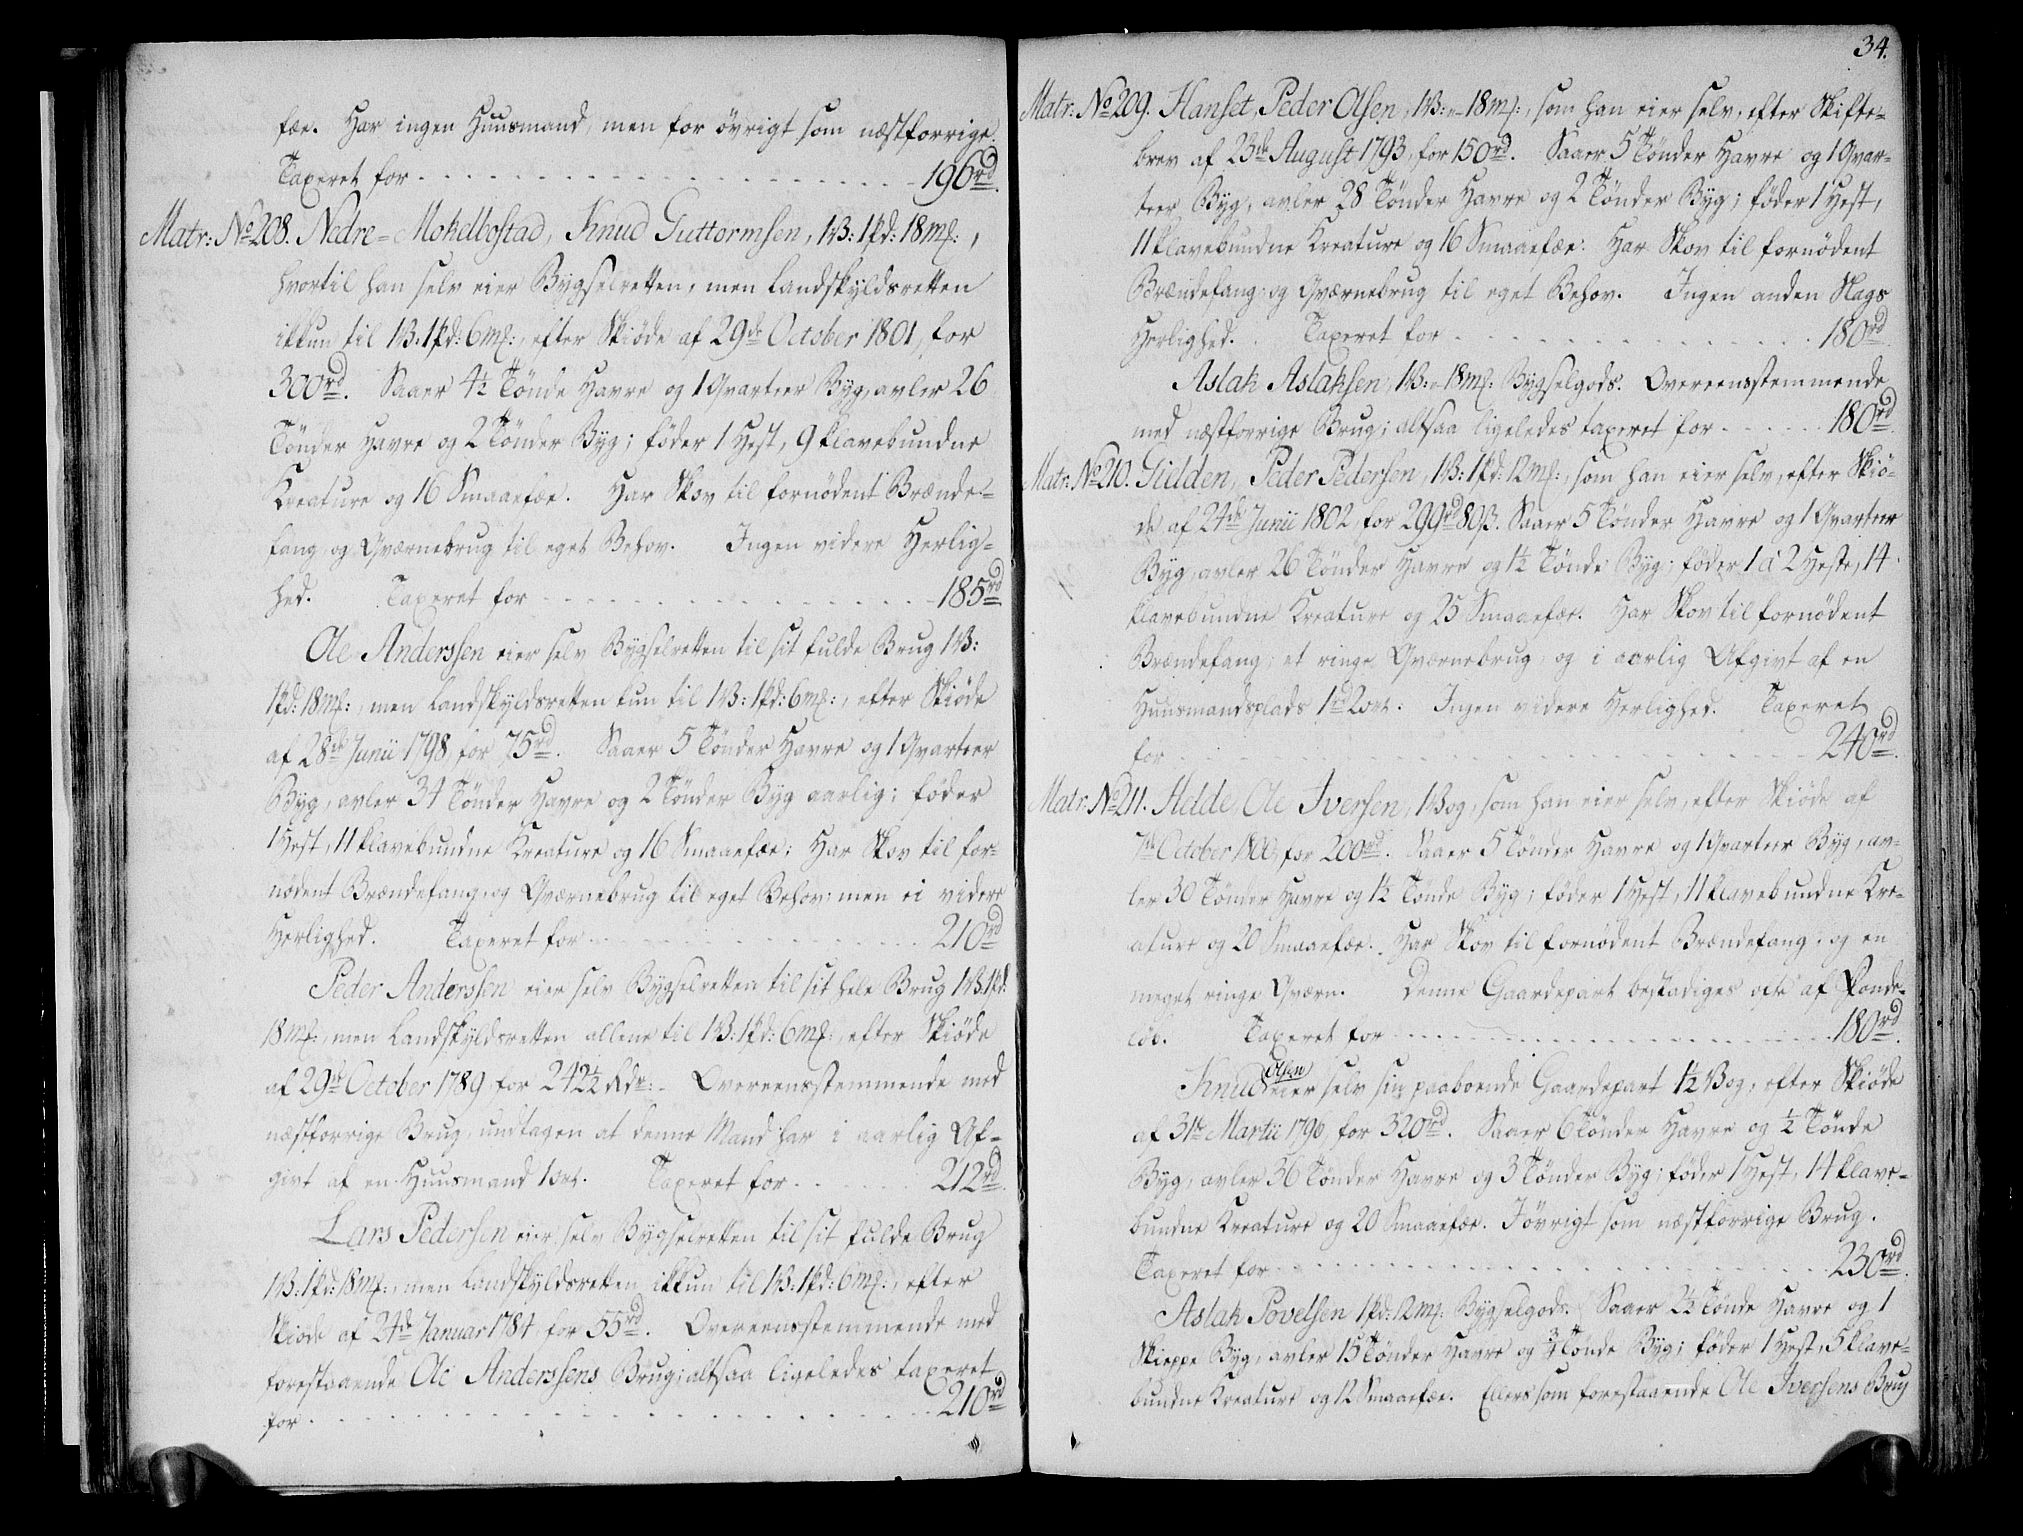 fæe. Har ingen Huusmand, men for övrigt som næstforrige.
Taxeret for - - - 196rd.
Matr: No 208. Nedre-Mokelbostad, Knud Guttormsen, 1V: 1pd: 18mk:,
hvortil han selv eier Bygselretten, men Landskyldsretten
ikkun til 1V: 1pd: 6mk:, efter Skiöde af 29de October 1801, for
300rd. Saaer 4½ Tönde Havre og 1 Qvarteer Byg, avler 26
Tönder Havre og 2 Tönder Byg; föder 1 Hest, 9 klavebundne
Kreature og 16 Smaaefæe. Har Skov til fornödent Brænde-
fang, og Qværnebrug til eget Behov. Ingen videre Herlig-
hed. Taxeret for - - - 185rd.
Ole Anderssen eier selv Bygselretten til sit fulde Brug 1V:
1pd: 18mk:, men Landskyldsretten kun til 1V: 1pd: 6mk:, efter Skiöde
af 28de Junii 1798, for 75rd. Saaer 5 Tönder Havre og 1 Qvarteer
Byg, avler 34 Tönder Havre og 2 Tönder Byg aarlig; föder
1 Hest, 11 klavebundne Kreature og 16 Smaaefæe; Har Skov til for-
nödent Brændefang, og Qværnebrug til eget Behov; men ei videre
Herlighed. Taxeret for - - - 210rd
Peder Anderssen eier selv Bygselretten til sit hele Brug 1V: 1pd:
18mk:, men Landskyldsretten allene til 1V: 1pd: 6mk:, efter Skiöde
af 29de October 1789 for 242½ Rdr:. Overeensstemmende med
næstforrige Brug, undtagen at denne Mand har i aarlig Af-
givt af en Huusmand 1 ort. Taxeret for - - - 212rd.
Lars Pedersen eier selv Bygselretten til sit fulde Brug
1V: 1pd: 18mk:, men Landskyldsretten ikkun til 1V: 1pd: 6mk:, efter
Skiöde af 24de Januar 1784, for 55rd. Overeensstemmende med
forestaaende Ole Anderssens Brug; altsaa ligeledes taxeret
for - - - 210rd
34.
Matr: No 209. Hanset, Peder Olsen, 1V: " 18mk:, som han eier selv, efter Skifte-
brev af 23de August 1793, for 150rd. Saaer 5 Tönder Havre og 1 Qvar-
teer Byg, avler 28 Tönder Havre og 2 Tönder Byg; föder 1 Hest,
11 klavebundne Kreature og 16 Smaaefæe. Har Skov til fornödent
Brændefang, og Qværnebrug til eget Behov. Ingen anden Slags
Herlighed. Taxeret for - - - 180rd.
Aslak Aslaksen, 1V: " 18mk: Bygselgods. Overeensstemmende
med næstforrige Brug; altsaa ligeledes taxeret for - - - 180rd.
Matr: No 210. Gidden, Peder Pedersen, 1V: 1pd: 12mk:, som han eier selv, efter Skiö-
de af 24de Junii 1802, for 299rd 80ß. Saaer 5 Tönder Havre og 1 Qvarteer
Byg, avler 26 Tönder Havre og 1½ Tönde Byg; föder 1 à 2 Heste, 14
klavebundne Kreature og 25 Smaaefæe. Har Skov til fornödent
Brændefang; et ringe Qværnebrug, og i aarlig Afgivt af en
Huusmandsplads 1rd 2 ort. Ingen videre Herlighed. Taxeret
for - - - 240rd.
Matr: No 211. Helde, Ole Iversen, 1 Vog, som han eier selv, efter Skiöde af
7de October 1800, for 200rd. Saaer 5 Tönder Havre og 1 Qvarteer Byg, av-
ler 30 Tönder Havre og 1½ Tönde Byg; föder 1 Hest, 11 klavebundne Kre-
ature og 20 Smaaefæe. Har Skov til fornödent Brændefang, og en
meget ringe Qværn. Denne Gaardepart beskadiges ofte af
Taxeret for - - - 180rd.
Knud Olsen eier selv sin paaboende Gaardepart 1½ Vog, efter Skiöde
af 31te Martii 1796, for 320rd. Saaer 6 Tönder Havre og ½ Tönde
Byg, avler 36 Tönder Havre og 3 Tönder Byg; föder 1 Hest, 14 klave-
bundne Kreature og 20 Smaaefæe. I övrigt som næstforrige Brug.
Taxeret for - - - 230rd.
Aslak Povelsen 1pd: 12mk: Bygselgods. Saaer 2½ Tönde Havre og 1
Skieppe Byg, avler 15 Tönder Havre og ¾ Tönde Byg; föder 1 Hest, 5 klave-
bundne Kreature og 12 Smaaefæe. Ellers som forestaaende Ole Iversens Brug